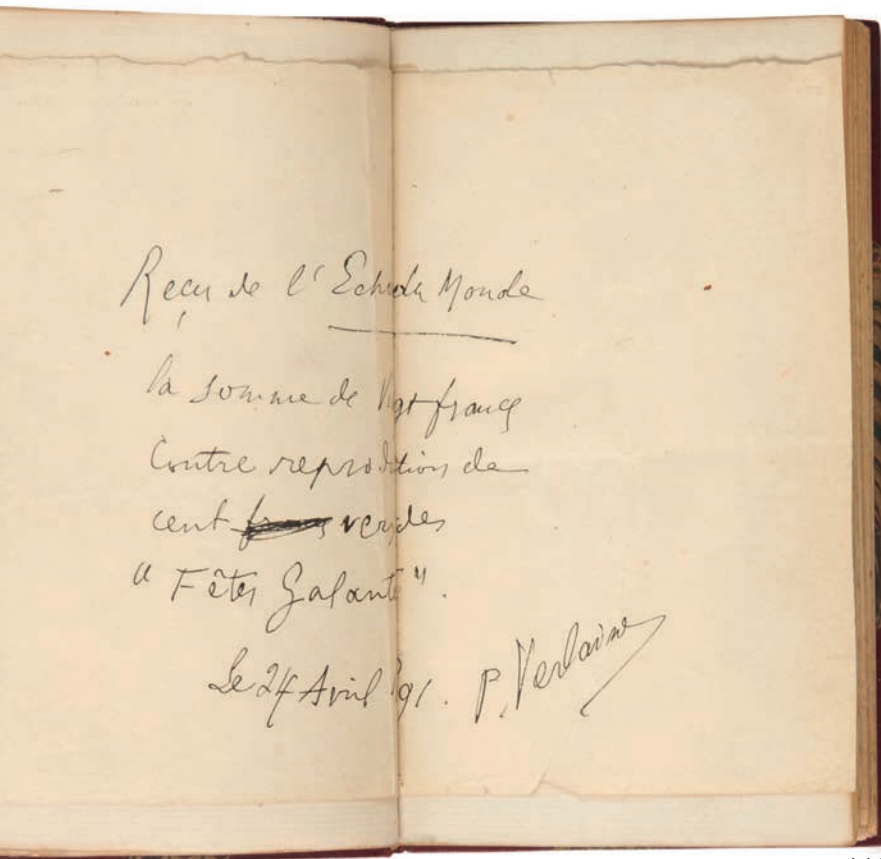 Reçu de l'Echo du Monde
la somme de Vgt francs
Contre reproduction de
cent vers des
"Fêtes Galantes".
Le 24 Avril 91. P. Verlaine